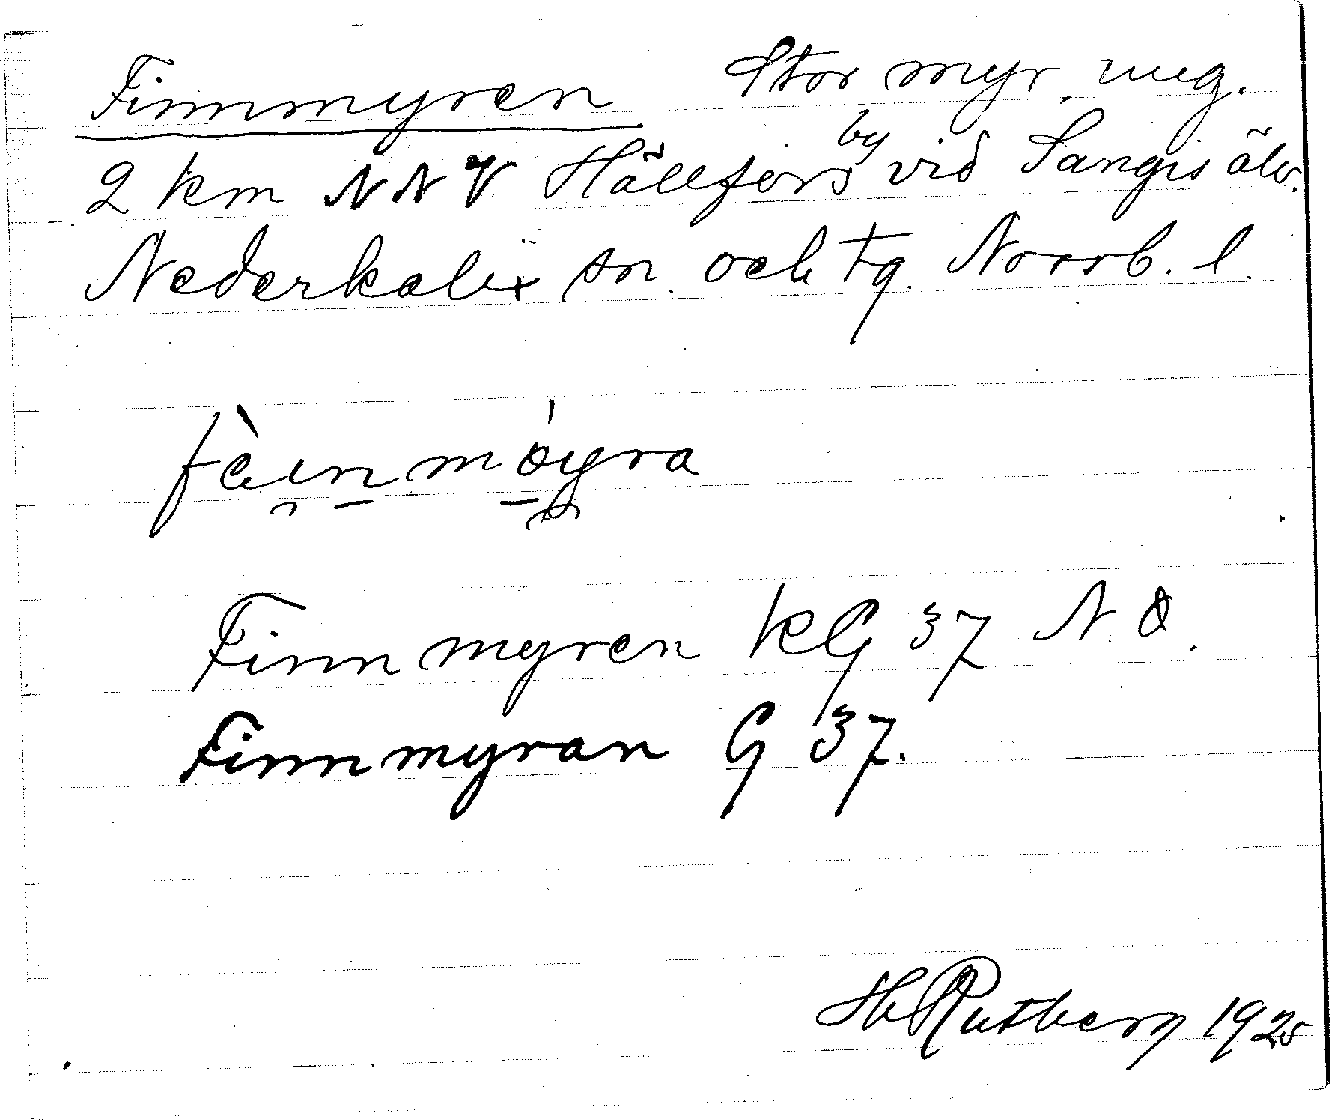 Finnmyren Stor myr, ung.
2 km NNV Hällfors by vid Sangis älv.
Nederkalix sn. och tg. Norrb. l.
fèinmøyra
Finnmyren KG 37 N.O.
Finnmyran G 37.
Hb Rutberg 1925